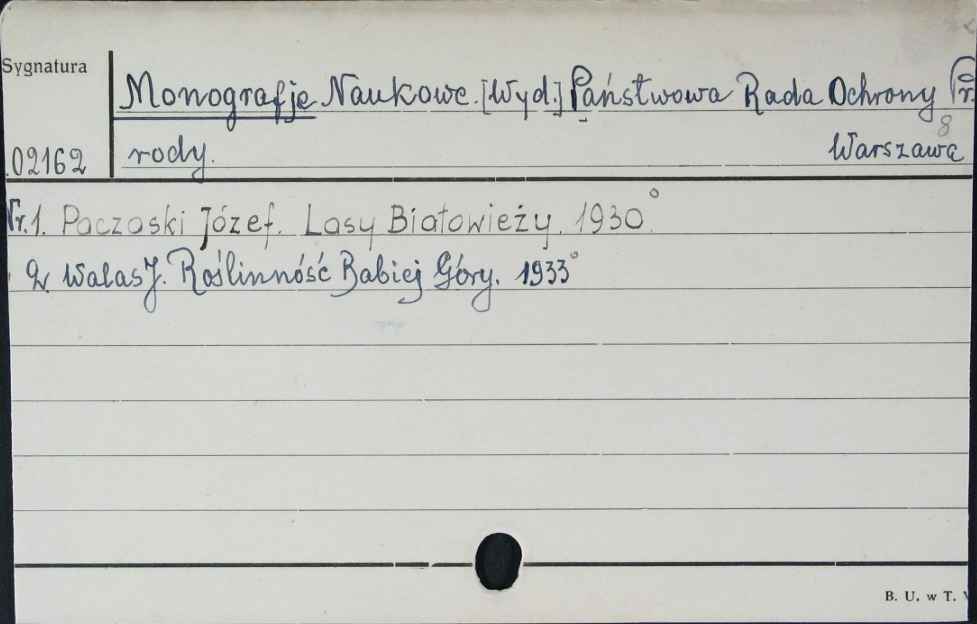 Sygnatura
Monografje Naukowe. [Wyd.] Państwowa Rada Ochrony Pr
8
02162 rody. Warszawa
Nr. 1. Paczoski Józef. Lasy Białowieży. 1930°
2 Walas J. Roślinność Babiej Góry. 1933°
B. U. w T.